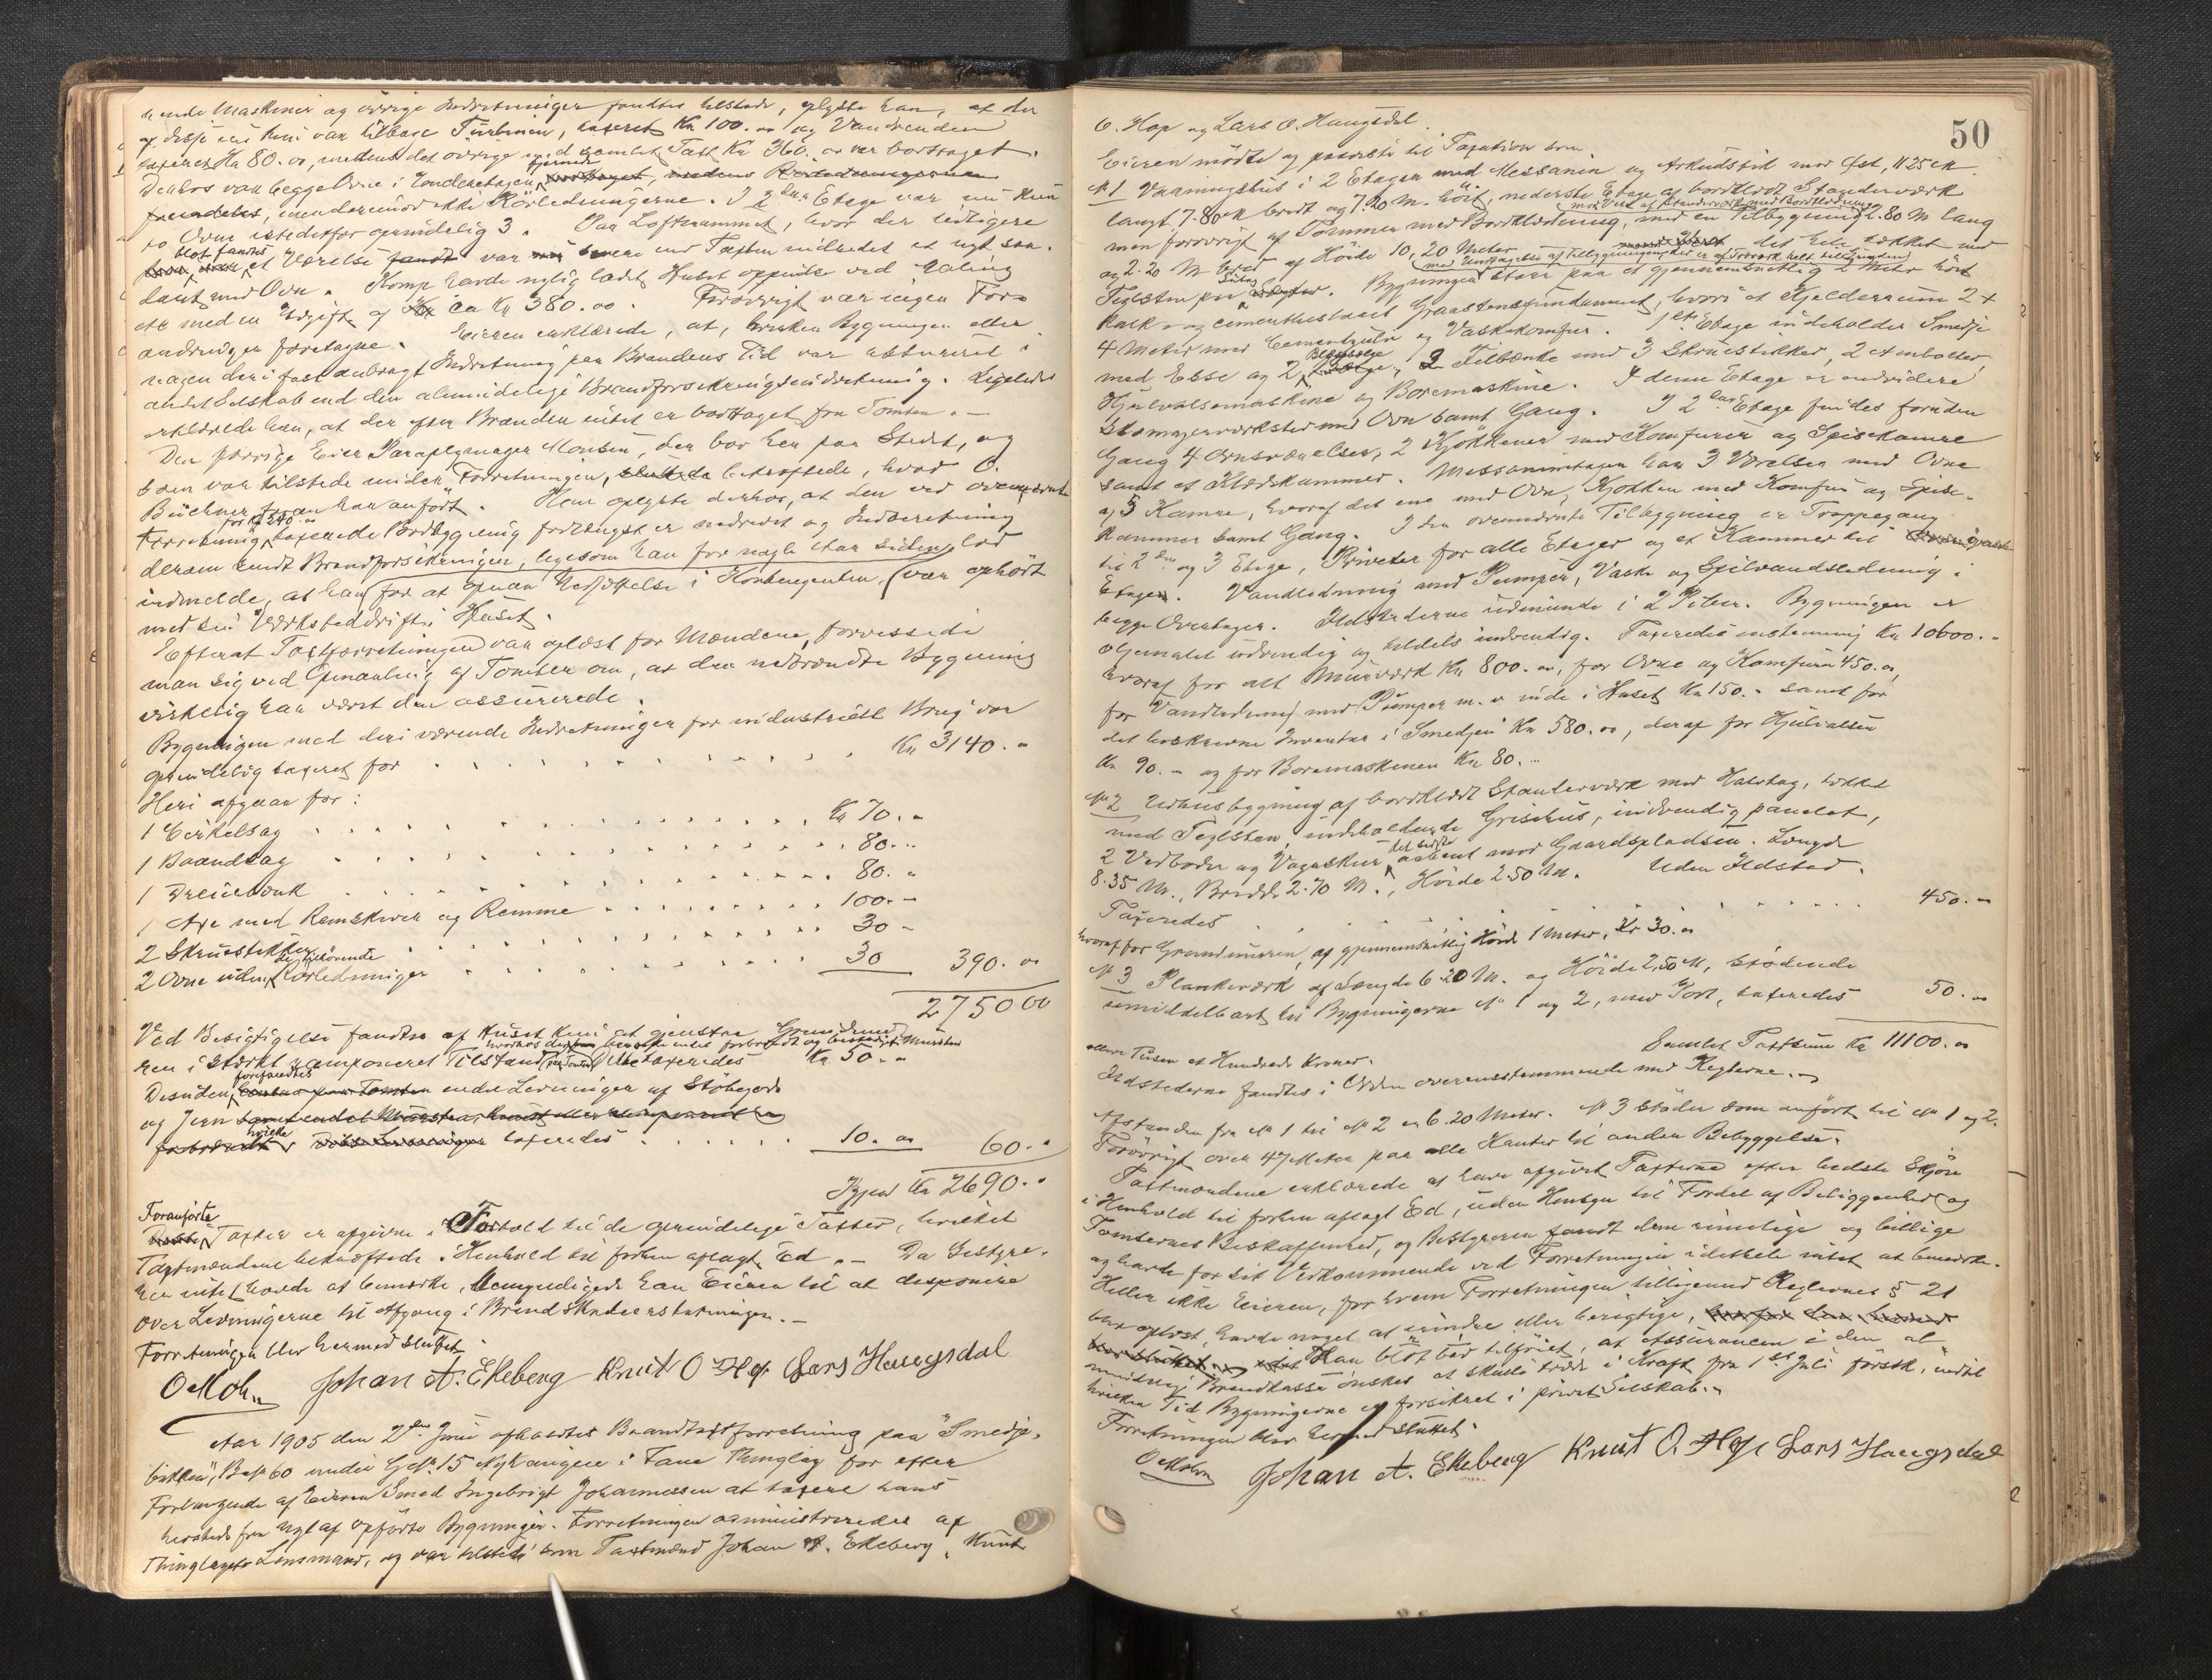 ende Maskiner og øvrige Indretninger fandtes tilstede, oplyste han, at der
af disse nu kun var tilbage Turbinen, taxeret Kr 100.00 og Vandrenden
taxeret Kr 80.00, medens det øvrige med samlet Taxt Kr 360.00 var borttaget.
Derhos var begge Ovne i Underetagen fjernede borttaget, medens Rørledningerne
fremdeles, men derimod ikke Rørledningerne. I 2den Etage var nu kun
to Ovne istedetfor oprindelig 3. Paa Loftrummet, hvor der tidligere
blot fandtes et Værelse fandt var senere end Taxten indredet et nyt saa-
dant med Ovn. Komp havde nylig ladt Huset oppudse ved Maling
etc med en Udgift af ca Kr 380.00. Forøvrigt var ingen For-
andringer foretagne. Eieren erklærede, at, hverken Bygningen eller
nogen deri fast anbragt Indretning paa Brandens Tid var assureret i
andet Selskab end den almindelige Brandforsikringsindretning. Ligeledes
erklærede han, at der efter Branden intet er borttaget fra Tomten.-
Den forrige Eier Paraplymager Monsen, der bor her paa Stedet, og
som var tilstede under Forretningen, bekræftede, hvad O.
Büchner foran har anført. Han oplyste derhos, at den ved ovennævnte
Forretning for Kr 240.00 taxerede Tilbygning forlængst er nedrevet og Indberetning
derom sendt Brandforsikringen, ligesom han for nogle Aar siden lod
indmelde, at han for at opnaa Nedsættelse i Kontingenten, var ophørt
med sin Værkstedsdrift i Huset.
Efterat Taxtforretningen var oplæst for Mændene, forvissede
man sig ved Opmaaling af Tomten om, at den nedbrændte Bygning
virkelig har været den assurerede.
Bygningen med deri værende Indretninger for industrielt Brug var
oprindelig taxeret for Kr 3140.-
Heri afgaar for:
1 Cirkelsag Kr 70.-
1 Baandsag 80.-
1 Dreiebænk 80.-
1 Axe med Remskiver og Remme 100.-
2 Skruestikker 30-
2 Ovne uden tilhørende Rørledninger 30 390.00
2750 00
Ved Besigtigelse fandtes af Huset kun at gjenstaa Grundmu-
ren i stærkt ramponeret Tilstand taxeredes Kr 50.-
Desuden forefandtes endel Levninger af Støbegods
og Jern
hvilke taxeredes 10.00 60.-
Igjen Kr 2690.-
Foranførte Taxter er afgivne i Forhold til de oprindelige Taxter, hvilket
Taxtmændene bekræftede i Henhold til forhen aflagt Ed.- Da Bestyre-
ren intet havde at bemærke, bemyndigede han Eieren til at disponere
over Levningerne til Afgang i Brandskadeerstatningen.-
Forretningen blev hermed sluttet.
O Mohn Johan A. Ekeberg Knut O Hop Lars Haugsdal
Aar 1905 den 2den Juni afholdtes Brandtaxtforretning paa "Smedje-
bakken", Bno 60 under Gno 15 i Fane Thinglag for efter
Forlangende af Eieren Smed Ingebrigt Johannessen at taxere hans
hersteds fra nyt af opførte Bygninger. Forretningen administreredes af
Thinglagets Lensmand, og var tilstede som Taxtmænd Johan A. Ekeberg, Knut
50
O. Hop og Lars O. Haugsdal.
Eieren mødte og paaviste til Taxation som
No 1 Vaaningshus i 2 Etager med Messanin og Arkudstik mod Øst, 11.25 M
langt, 7.80 M bredt og 7.20 M. høit, nederste Etage af bordklædt Stænderværk
men forøvrigt af Tømmer med Bordklædning, med en Tilbygning 2.80 M lang
og 2.20 M bred af Høide 10,20 Meter det hele tækket med
(med Undtagelse af Tilbygningen, der er af Træværk helt til Grunden)
Teglsten paa Sutag. Bygningen staar paa et gjennemsnitlig 2 Meter høit
kalk- og cementhestaaet Graastensfundament, hvori et Kjelderrum 2 x
4 Meter med Cementgulv og Vaskekomfur. 1ste Etage indeholder Smedje
med Esse og 2 Blæsbælge, 2 Filbænke med 3 Skruestikker, 2 Ambolter,
Hjulvalsemaskine og Boremaskine. I denne Etage er endvidere
Skomagerværksted med Ovn samt Gang. I 2den Etage findes foruden
Gang 4 Ovnsværelser, 2 Kjøkkener med Komfurer og Spisekamre
samt et Klædskammer. Messaninetagen har 3 Værelser med Ovne
og 3 Kamre, hvoraf det ene med Ovn, Kjøkken med Komfur og Spise-
kammer samt Gang. I den ovennævnte Tilbygning er Trappegang
til 2den og 3 Etage, Priveter for alle Etager og et Kammer til
Etagen. Vandledning med Pumper, Vaske og Spilvandsledning i
begge Overetager. Ildstederne udmunde i 2 Piber. Bygningen er
oljemalet udvendig og tildels indvendig. Taxeredes enstemmig Kr 10600.-
hvoraf for alt Murværk Kr 800.00, for Ovne og Komfurer 450.00,
for Vandledning med Pumper m. v inde i Huset Kr 150.- samt for
det beskrevne Inventar i Smedjen Kr 580.00, deraf for Hjulvalsen
Kr 90.- og for Boremaskinen Kr 80.-
No 2 Udhusbygning af bordklædt Stænderværk med Halvtag, tækket
med Teglsten, indeholdende Grisehus, indvendig panelet,
2 Vedboder og Vognskur det sidste aabent mod Gaardspladsen. Længde
8.35 M., Bredde 2.70 M., Høide 2.50 M. Uden Ildsted.
Taxeredes 450.-
hvoraf for Grundmuren, af gjennemsnitlig Høide 1 Meter, Kr 30.00
No 3 Plankeværk af Længde 6.20 M. og Høide 2,50 M, stødende
umiddelbart til Bygningerne No 1 og 2, med Port, taxeredes 50.-
Samlet Taxtsum Kr 11100.00
elleve Tusen et Hundrede Kroner.
Ildstederne fandtes i Orden overensstemmende med Reglerne.-
Afstanden fra No 1 til No 2 er 6.20 Meter. No 3 støder som anført til No 1 og 2.
Forøvrigt over 47 Meter paa alle Kanter til anden Bebyggelse.
Taxtmændene erklærede at have afgivet Taxterne efter bedste Skjøn
i Henhold til forhen aflagt Ed, uden Hensyn til Fordel af Beliggenhed og
Tomternes Beskaffenhed, og Bestyreren fandt dem rimelige og billige
og havde for sit Vedkommende ved Forretningen idethele intet at bemærke.
Heller ikke Eieren, for hvem Forretningen tilligemed Reglernes § 21
blev oplæst, havde noget at erindre eller berigtige,
Han blot bad tilføiet, at Assurancen i den al-
mindelige Brandkasse ønskes at skulle træde i Kraft fra 1ste Juli førstk., indtil
hvilken Tid Bygningerne er forsikret i privat Selskab.-
Forretningen blev hermed sluttet.
O Mohn Johan A. Ekeberg Knut O. Hop Lars Haugsdal